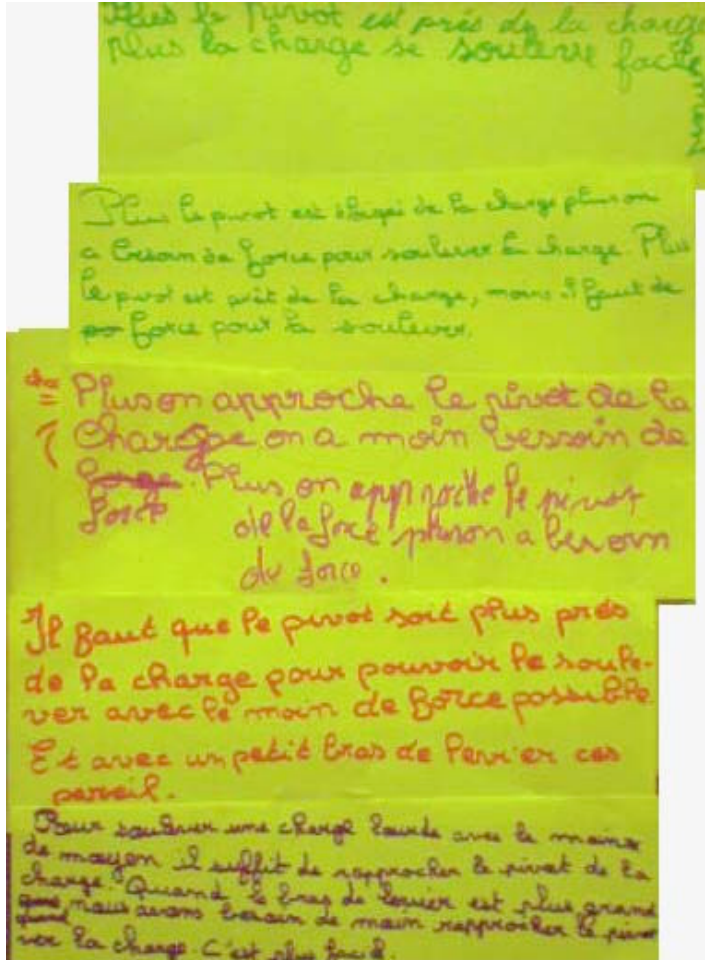 Plus le pivot est près de la charge
plus la charge se soulève facile
ment
Plus le pivot est éloigné de la charge plus on
a besoin de force pour soulever la charge. Plus
le pivot est prêt de la charge, moins il faut de
force pour la soulever.
cha Plus on approche le pivot de la
Charge on a moin bessoin de
force. Plus on approche le pivot
force de la force pluson a besoin
de force.
Il faut que le pivot soit plus près
de la charge pour pouvoir le soule-
ver avec le moin de force possible.
Et avec un petit bras de levier ces
pareil.
Pour soulever une charge lourde avec le moins
de moyen il suffit de rapprocher le pivot de la
charge. Quand le bras de levier est plus grand
quand nous avons besoin de moin rapprocher le pivot
ver la charge. C'est plus facile.